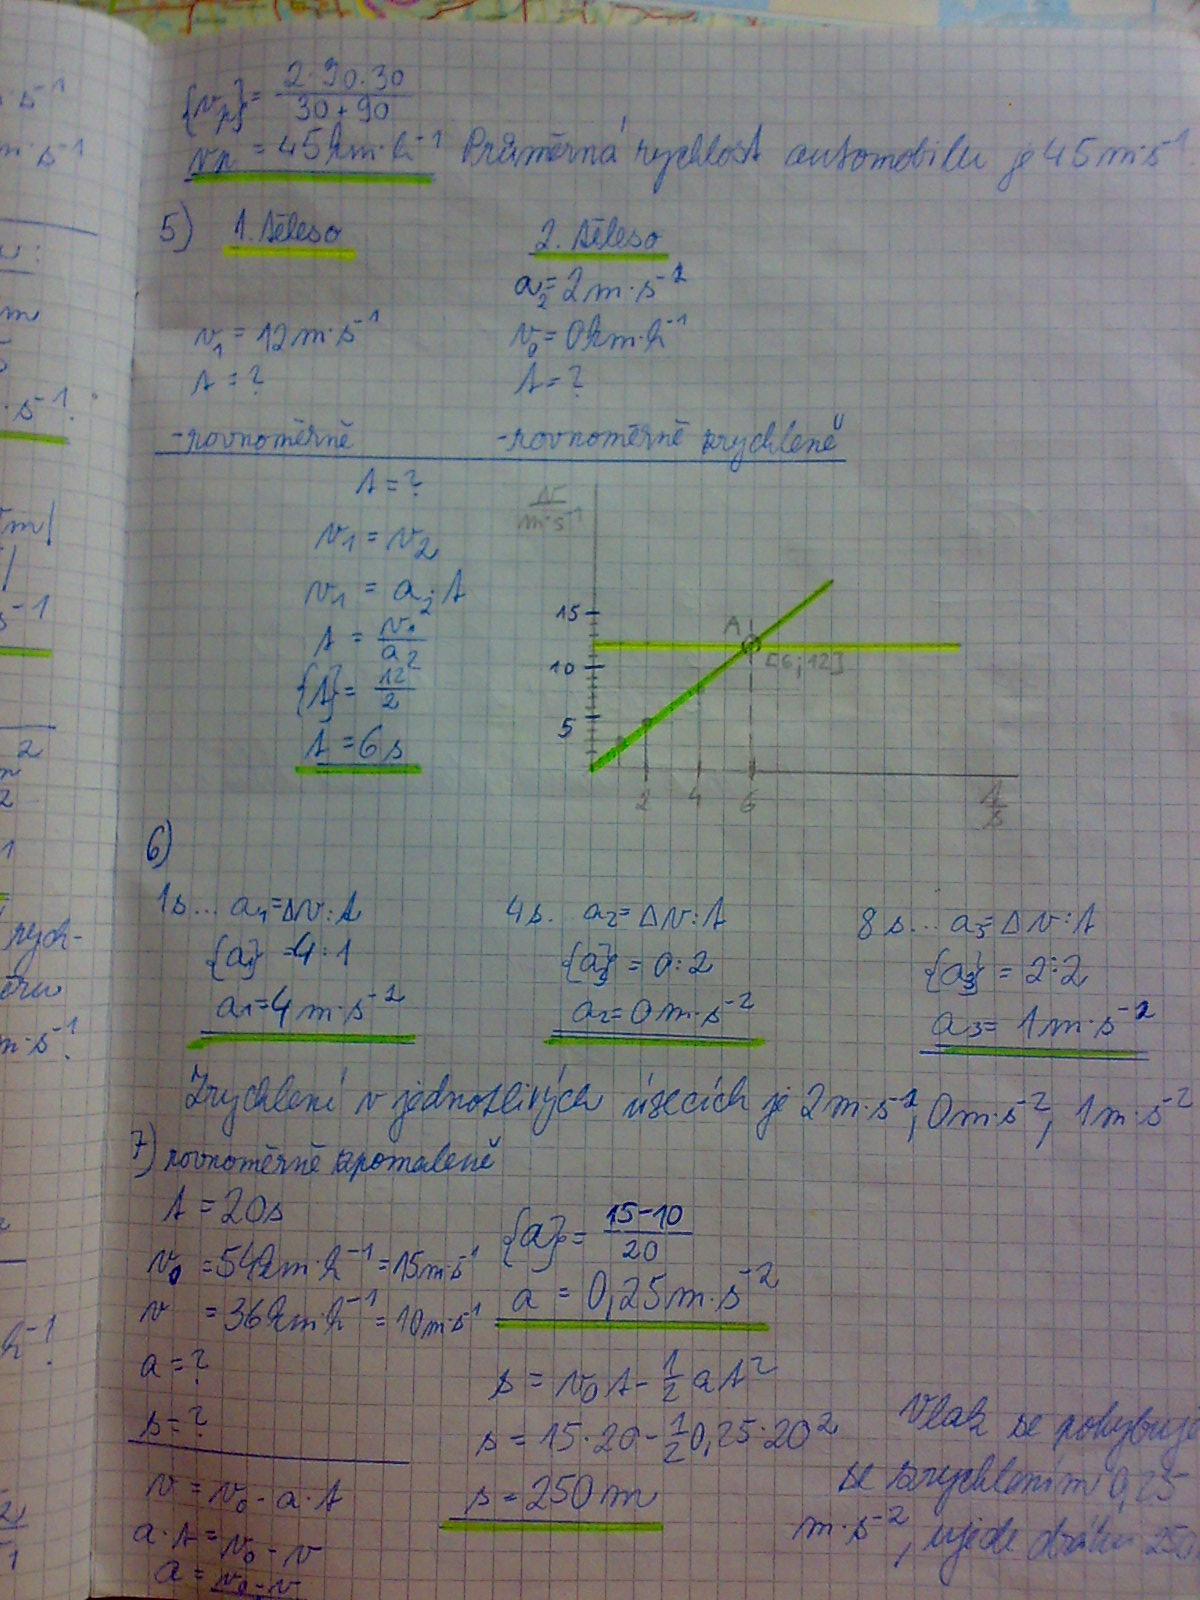 {vp} = 2·90·30 / 30+90
vp = 45km·h⁻¹ Průměrná rychlost automobilu je 45m·s⁻¹
5) 1. těleso 2. těleso
a₂ = 2m·s⁻²
v₁ = 12m·s⁻¹ v₀ = 0km·h⁻¹
t = ? t = ?
-rovnoměrně -rovnoměrně zrychleně
t = ?
v₁ = v₂
v₁ = a₂·t
t = v₁/a₂
{t} = 12/2
t = 6s
v/m·s⁻¹
15
10
5
A
[6;12]
2 4 6
t/s
6)
1s... a₁=Δv:t 4s. a₂=Δv:t 8s... a₃=Δv:t
{a₁} = 4:1 {a₂} = 0:2 {a₃} = 2:2
a₁=4m·s⁻² a₂=0m·s⁻² a₃= 1m·s⁻²
Zrychlení v jednotlivých úsecích je 2m·s⁻², 0m·s⁻², 1m·s⁻²
7) rovnoměrně zpomaleně
t = 20s
v₀ = 54km·h⁻¹ = 15m·s⁻¹
v = 36km·h⁻¹ = 10m·s⁻¹
a = ?
s = ?
v = v₀ - a·t
a·t = v₀ - v
a = v₀-v
{a} = 15-10 / 20
a = 0,25m·s⁻²
s = v₀t - ½at²
s = 15·20 - ½0,25·20²
s = 250m
Vlak se pohybuje
se zrychlením 0,25
m·s⁻², ujede dráhu 250